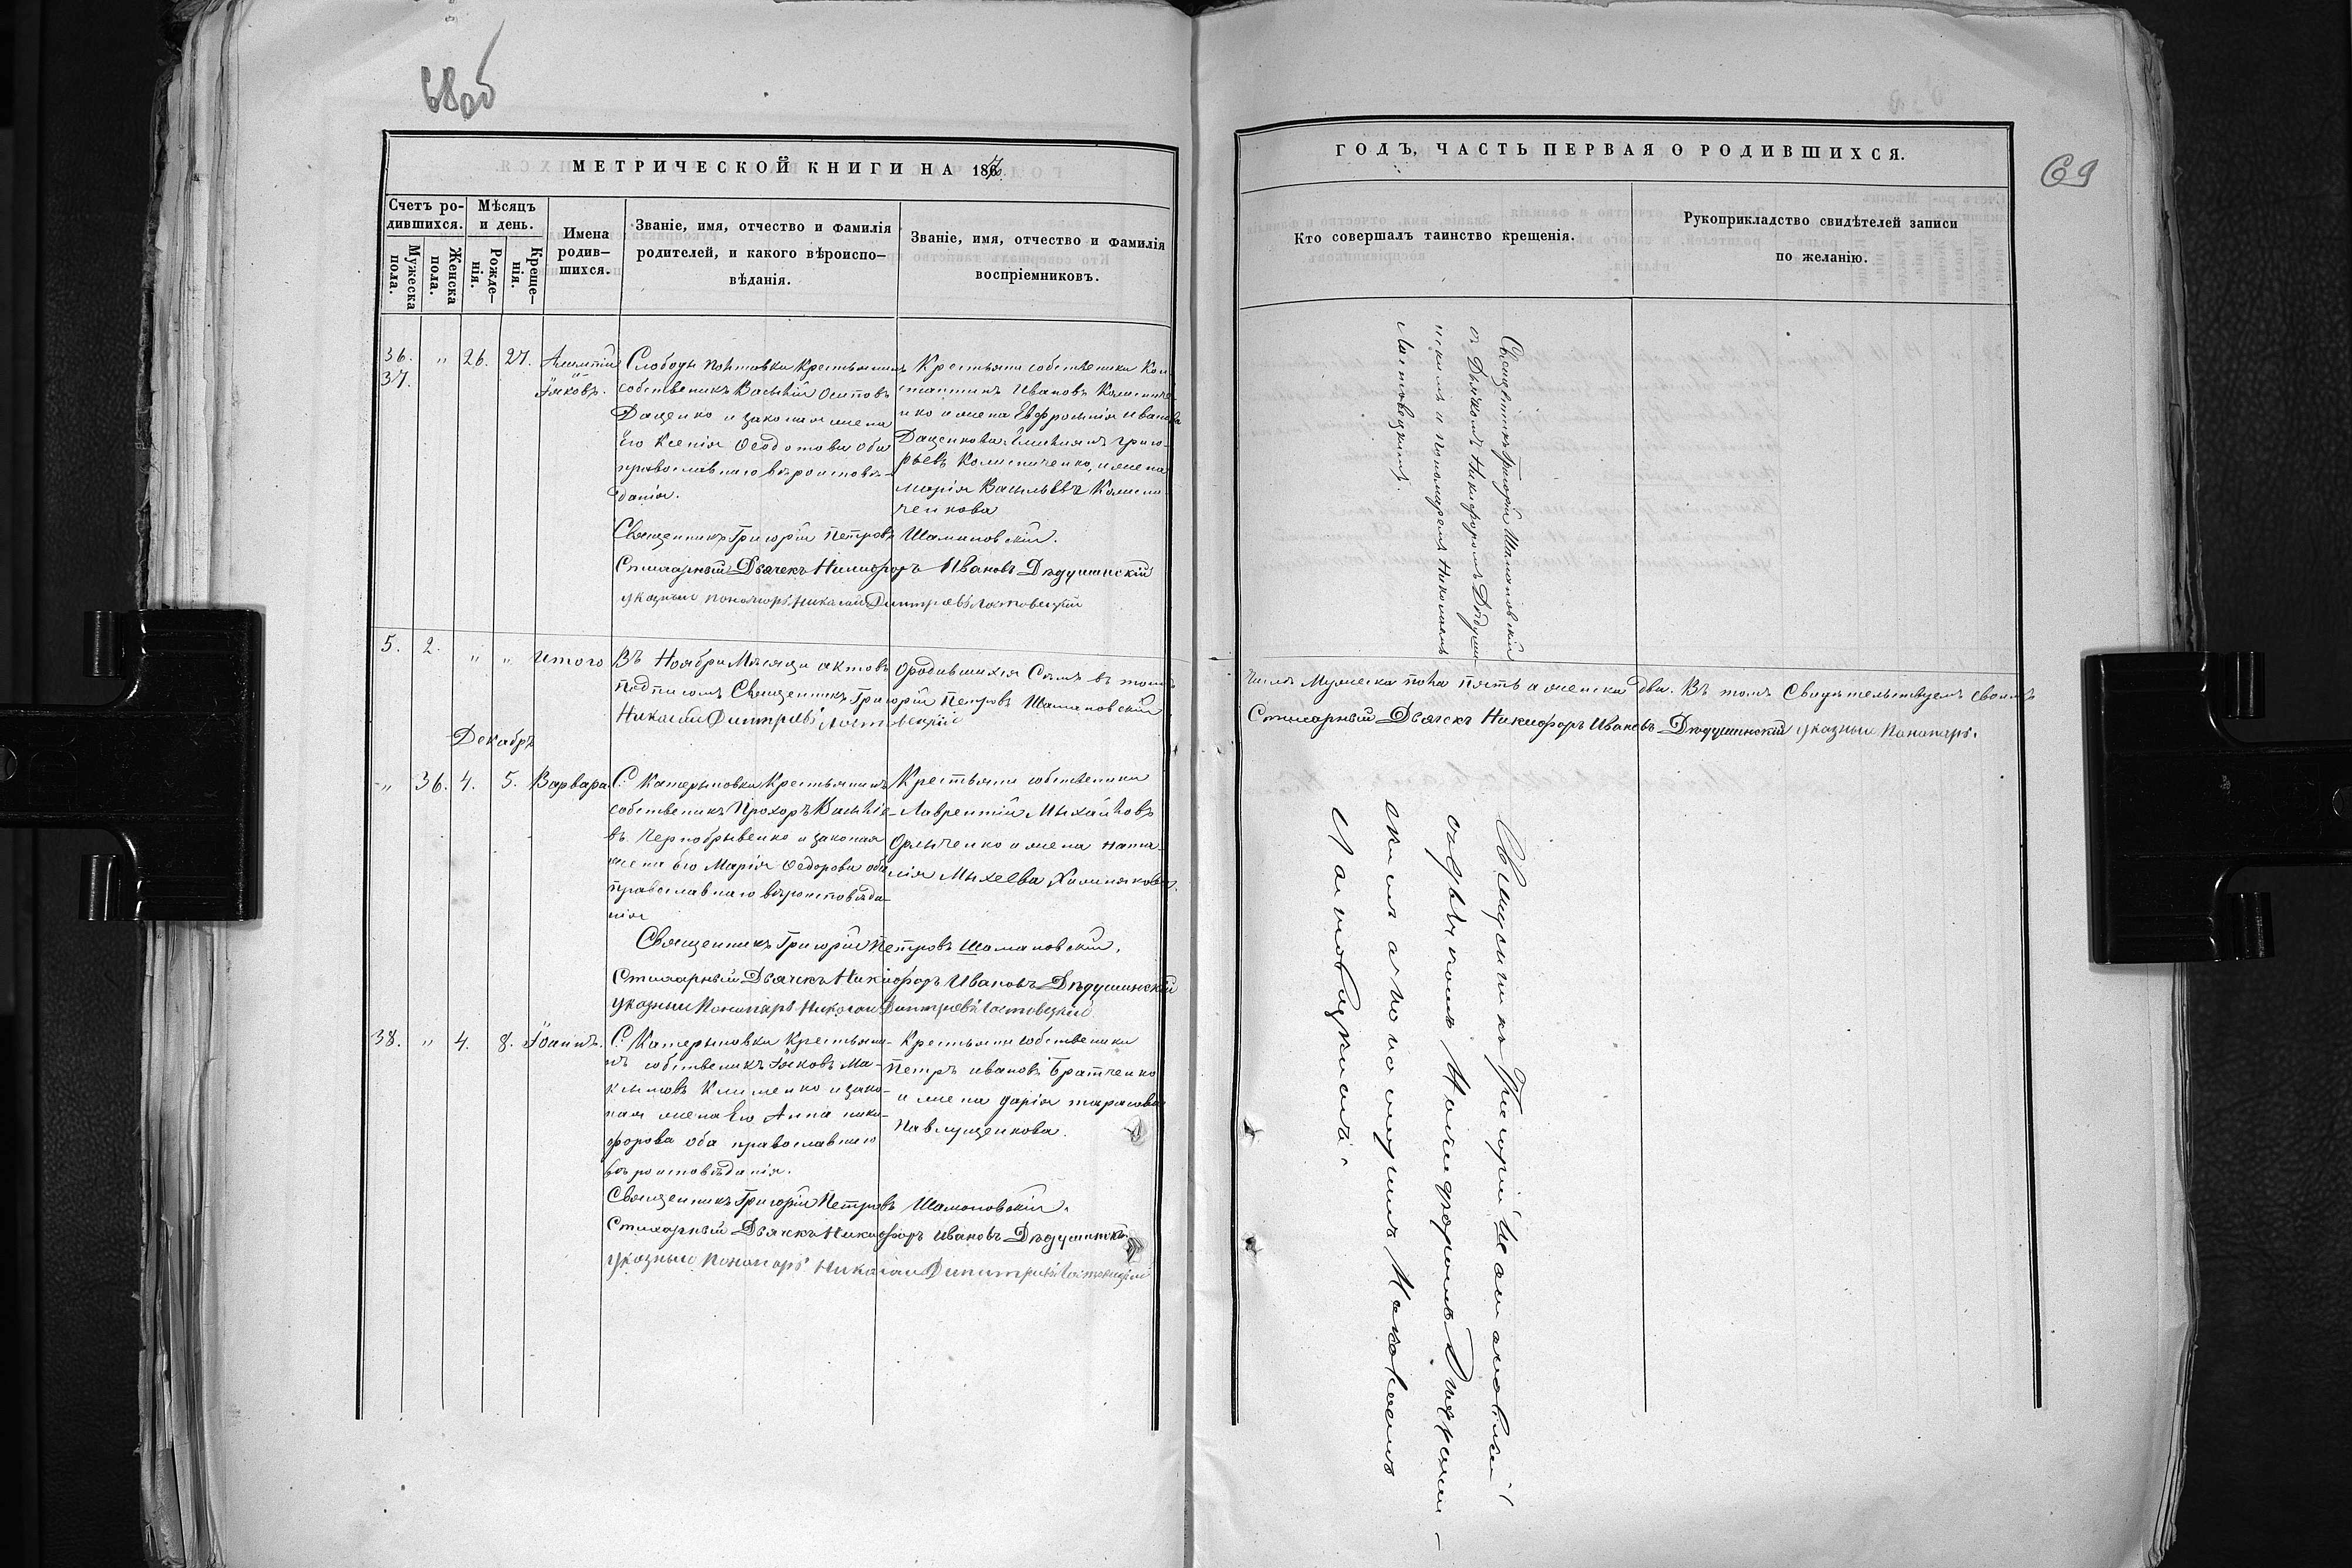 68об
МЕТРИЧЕСКОЙ КНИГИ НА 186
Счетъ ро-
дившихся.
Мужеска
пола.
Женска
пола.
Мѣсяцъ
и день.
Рожде-
нія.
Креще-
нія.
Имена
родив-
шихся.
Званіе, имя, отчество и фамилія
родителей, и какого вѣроиспо-
вѣданія.
Званіе, имя, отчество и фамилія
воспріемниковъ.
36.
37.
"
26.
27.
Алимпій
Іяковъ.
Слободы Крестьянинъ
собственикъ Василій Осиповъ
Даценко и законая жена
Его Ксенія Ѳеодотова оба
православнаго вѣроисповѣ-
данія.
Крестьяни собственики Кон
стантинъ Ивановъ
нко и жена Евфросинія Иванова
Даценкова Григо-
рьевъ и жена
Марія
ченкова
Священникъ Григорій Петровъ Шамановскій.
Стихарный Дьячекъ Никифоръ Ивановъ Дѣдушинскій
указный пономарь Николай Димтріевъ Лостовецкій
5.
2.
"
"
Итого
Въ Ноябри Месяци актовъ ородившихся Семь въ томъ
подписомъ Священникъ Григорій Петровъ Шамановскій
Николай Димтріевъ Лостовецкій
Декабръ
"
36.
4.
5.
Варвара.
С. Катериновки Крестьянинъ
собственикъ Прохоръ Василіе-
въ Чернобривенко и законая
жена Его Марія Ѳедорова оба
православнаго вѣроисповѣда-
нія
Крестьяни собственики
Лаврентій Михайловъ
и жена Ната-
лія Михеева
Священникъ Григорій Петровъ Шамановскій.
Стихарный Дьячекъ Никифоръ Ивановъ Дѣдушинскій
указный Пономарь Николай Димтріевъ Лостовецкій
38.
"
4.
8.
Іоаннъ.
С. Катериновки Крестьяни-
нъ собственикъ Іяковъ Ма-
ксимовъ Клименко и зако-
ная жена Его Анна Ники-
форова оба православнаго
вѣроисповѣданія.
Крестьяни собственики
Петръ Ивановъ Братченко
и жена Дарія Тарасова
Павлущенкова.
Священникъ Григорій Петровъ Шамановскій.
Стихарный Дьячекъ Никифоръ Ивановъ Дѣдушинскій
указный Пономарь Николай Димитріевъ Лостовецкій
ГОДЪ, ЧАСТЬ ПЕРВАЯ О РОДИВШИХСЯ.
69
Кто совершалъ таинство крещенія.
Рукоприкладство свидѣтелей записи
по желанію.
Священникъ Григорій Шамановскій
съ Дьячкомъ Никифоромъ Дѣдуши-
нскимъ и Пономаремъ Николаемъ
Лостовецкимъ.
числѣ Мужеска пола пять а женска два. Въ томъ Свидѣтельствуемъ своимъ
Стихарный Дьячекъ Никифоръ Ивановъ Дѣдушинскій указный Пономарь.
Священникъ Григорій Шамановскій
съ Дьячкомъ Никифоромъ Дѣдуши-
нскимъ и Николаемъ
Лостовецкимъ.